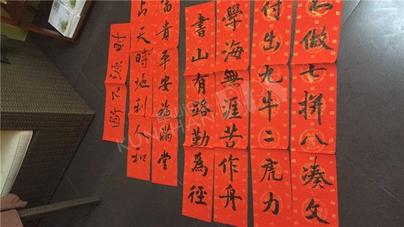 财源不断
占天時地利人和
富貴平安福滿堂
書山有路勤為徑
學海無涯苦作舟
付出九牛二虎力
做七拼八凑文